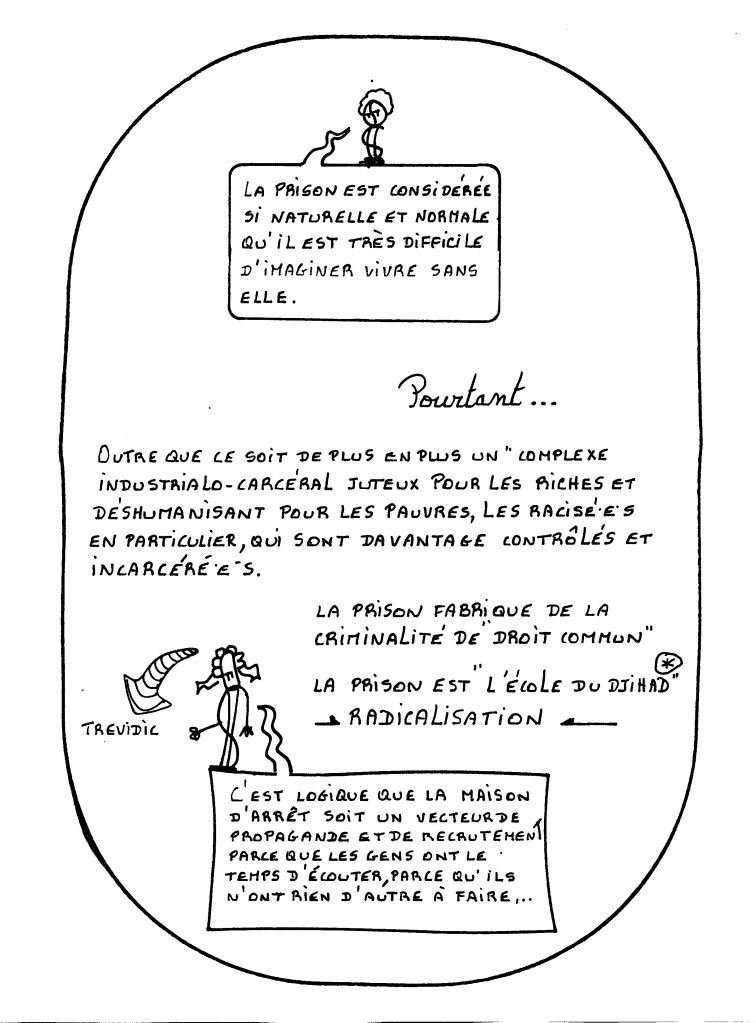 LA PRISON EST CONSIDÉRÉE
SI NATURELLE ET NORMALE
QU'IL EST TRÈS DIFFICILE
D'IMAGINER VIVRE SANS
ELLE.
Pourtant...
OUTRE QUE CE SOIT DE PLUS EN PLUS UN "COMPLEXE
INDUSTRIALO-CARCÉRAL JUTEUX POUR LES RICHES ET
DÉSHUMANISANT POUR LES PAUVRES, LES RACISÉ·E·S
EN PARTICULIER, QUI SONT DAVANTAGE CONTRÔLÉS ET
INCARCÉRÉ·E·S.
LA PRISON FABRIQUE DE LA
CRIMINALITÉ DE "DROIT COMMUN"
LA PRISON EST "L'ÉCOLE DU DJIHAD" *
RADICALISATION
TREVIDIC
C'EST LOGIQUE QUE LA MAISON
D'ARRÊT SOIT UN VECTEUR DE
PROPAGANDE ET DE RECRUTEMENT
PARCE QUE LES GENS ONT LE
TEMPS D'ÉCOUTER, PARCE QU'ILS
N'ONT RIEN D'AUTRE À FAIRE,..